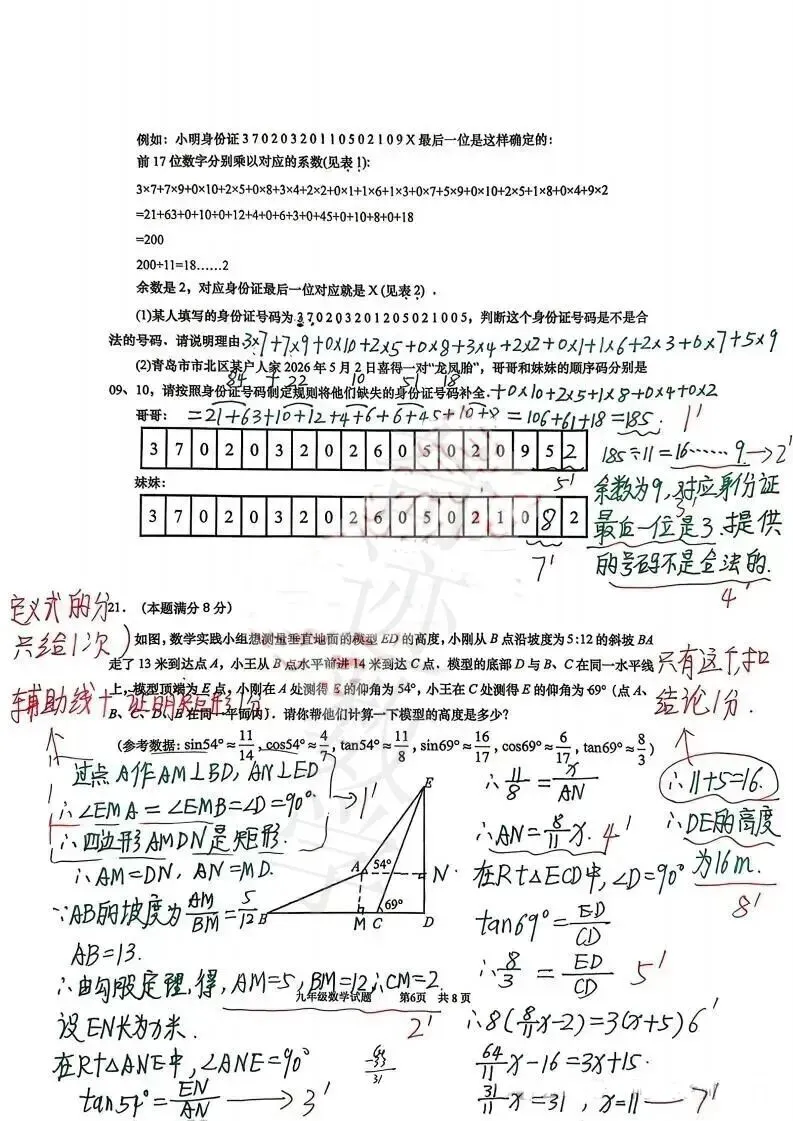 例如：小明身份证 3 7 0 2 0 3 2 0 1 1 0 5 0 2 1 0 9 X 最后一位是这样确定的：
前 17 位数字分别乘以对应的系数(见表 1):
3×7+7×9+0×10+2×5+0×8+3×4+2×2+0×1+1×6+1×3+0×7+5×9+0×10+2×5+1×8+0×4+9×2
=21+63+0+10+0+12+4+0+6+3+0+45+0+10+8+0+18
=200
200÷11=18……2
余数是 2，对应身份证最后一位对应就是 X (见表 2) .
(1)某人填写的身份证号码为 3 7 0 2 0 3 2 0 1 2 0 5 0 2 1 0 0 5，判断这个身份证号码是不是合
法的号码、请说明理由 3×7+7×9+0×10+2×5+0×8+3×4+2×2+0×1+1×6+2×3+0×7+5×9
(2)青岛市市北区某户人家 2026 年 5 月 2 日喜得一对“龙凤胎”，哥哥和妹妹的顺序码分别是
84 + 22 10 51 18
09、10，请按照身份证号码制定规则将他们缺失的身份证号码补全. +0×10+2×5+1×8+0×4+0×2
哥哥： =21+63+10+12+4+6+6+45+10+8=106+61+18=185. 1'
3 7 0 2 0 3 2 0 2 6 0 5 0 2 0 9 5 2
185÷11=16……9. →2'
妹妹： 5'
余数为9,对应身份证
3'
3 7 0 2 0 3 2 0 2 6 0 5 0 2 1 0 8 2
最后一位是3.提供
7'
的号码不是合法的.
4'
定义式的分
只给1次)
21. （本题满分 8 分）
如图，数学实践小组想测量垂直地面的模型 ED 的高度，小刚从 B 点沿坡度为 5:12 的斜坡 BA
走了 13 米到达点 A，小王从 B 点水平前进 14 米到达 C 点、模型的底部 D 与 B、C 在同一水平线
只有这个和
上，模型顶端为 E 点，小刚在 A 处测得 E 的仰角为 54°，小王在 C 处测得 E 的仰角为 69°（点 A、
辅助线+证明矩形1分
结论1分.
B、C、D、E 在同一平面内）. 请你帮他们计算一下模型的高度是多少？
(参考数据: sin54°≈11/14, cos54°≈4/7, tan54°≈11/8, sin69°≈16/17, cos69°≈6/17, tan69°≈8/3)
过点A作AM⊥BD, AN⊥ED
∴∠EMA=∠EMB=∠D=90°. →1'
∴四边形AMDN是矩形.
∴AM=DN, AN=MD.
∵AB的坡度为AM/BM=5/12
AB=13.
∴由勾股定理,得,AM=5,BM=12,∴CM=2
九年级数学试题 第6页 共 8 页
2'
设EN长为x米.
在Rt△ANE中,∠ANE=90°
tan54°=EN/AN →3'
E
A 54° N
69°
B M C D
64
-33
31
∴11/8=x/AN
∴AN=8/11x. 4'
在Rt△ECD中,∠D=90°
tan69°=ED/CD
∴8/3=ED/CD 5'
∴8(8/11x-2)=3(x+5) 6'
64/11x-16=3x+15.
31/11x=31, x=11—7'
∴11+5=16.
∴DE的高度
为16m.
8'